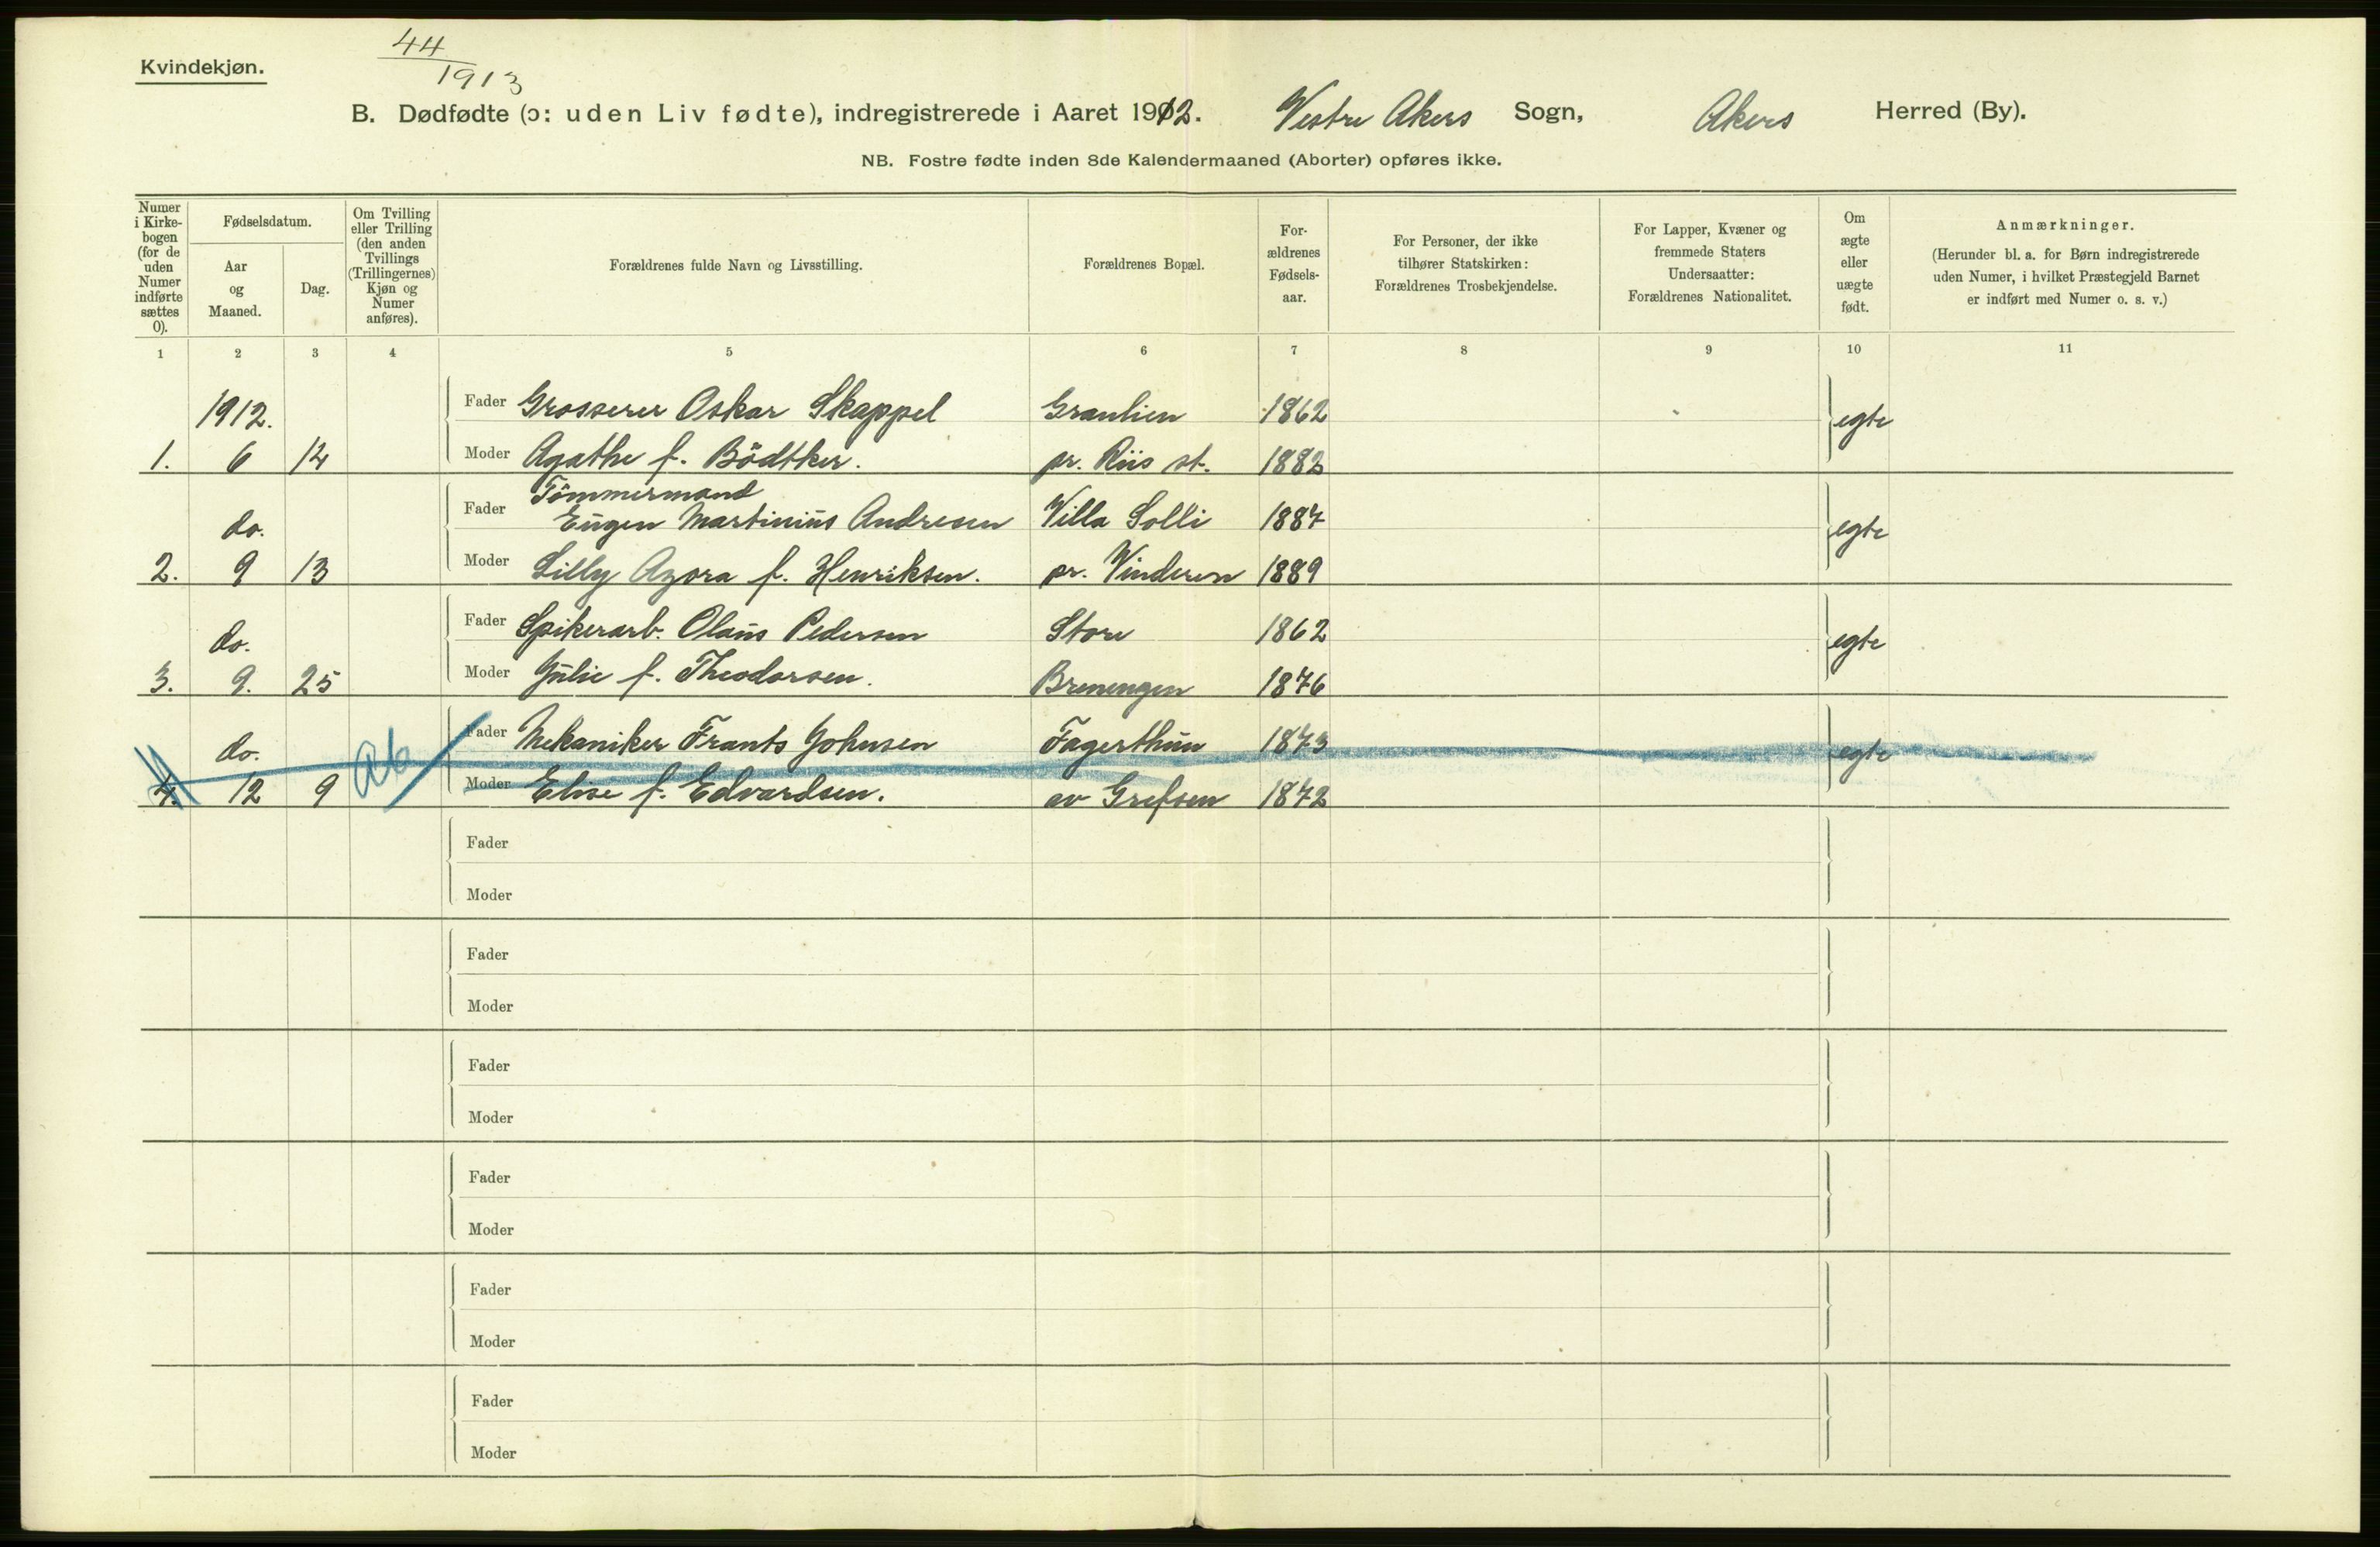 Kvindekjøn.
44
1913
B. Dødfødte (ɔ: uden Liv fødte), indregistrerede i Aaret 1912. Vestre Akers Sogn, Akers Herred (By).
NB. Fostre fødte inden 8de Kalendermaaned (Aborter) opføres ikke.
Numer i Kirke-bogen (for de uden Numer indførte sættes 0).
Fødselsdatum.
Aar og Maaned.
Dag.
Om Tvilling eller Trilling (den anden Tvillings (Trillingernes) Kjøn og Numer anføres).
Forældrenes fulde Navn og Livsstilling.
Forældrenes Bopæl.
For-ældrenes Fødsels-aar.
For Personer, der ikke tilhører Statskirken: Forældrenes Trosbekjendelse.
For Lapper, Kvæner og fremmede Staters Undersaatter: Forældrenes Nationalitet.
Om ægte eller uægte født.
Anmærkninger.
(Herunder bl. a. for Børn indregistrerede uden Numer, i hvilket Præstegjeld Barnet er indført med Numer o. s. v.)
1 2 3 4 5 6 7 8 9 10 11
1912. Fader Grosserer Oskar Skappel Granlien 1862 egte
1. 6 14 Moder Agathe f. Bödtker. pr. Riis st. 1882
Tömmermand
do. Fader Eugen Martinius Andresen Villa Solli 1887 egte
2. 9 13 Moder Lilly Azora f. Henriksen. pr. Vinderen 1889
do. Fader Spikerarb. Olaus Pedersen Store 1862 egte
3. 9. 25 Moder Julie f. Theodorsen. Brenengen 1876
do. Ab Fader Mekaniker Frants Johnsen Fagerthun 1873 egte
4. 12 9 Moder Elise f. Edvardsen. av Grefsen 1872
Fader
Moder
Fader
Moder
Fader
Moder
Fader
Moder
Fader
Moder
Fader
Moder